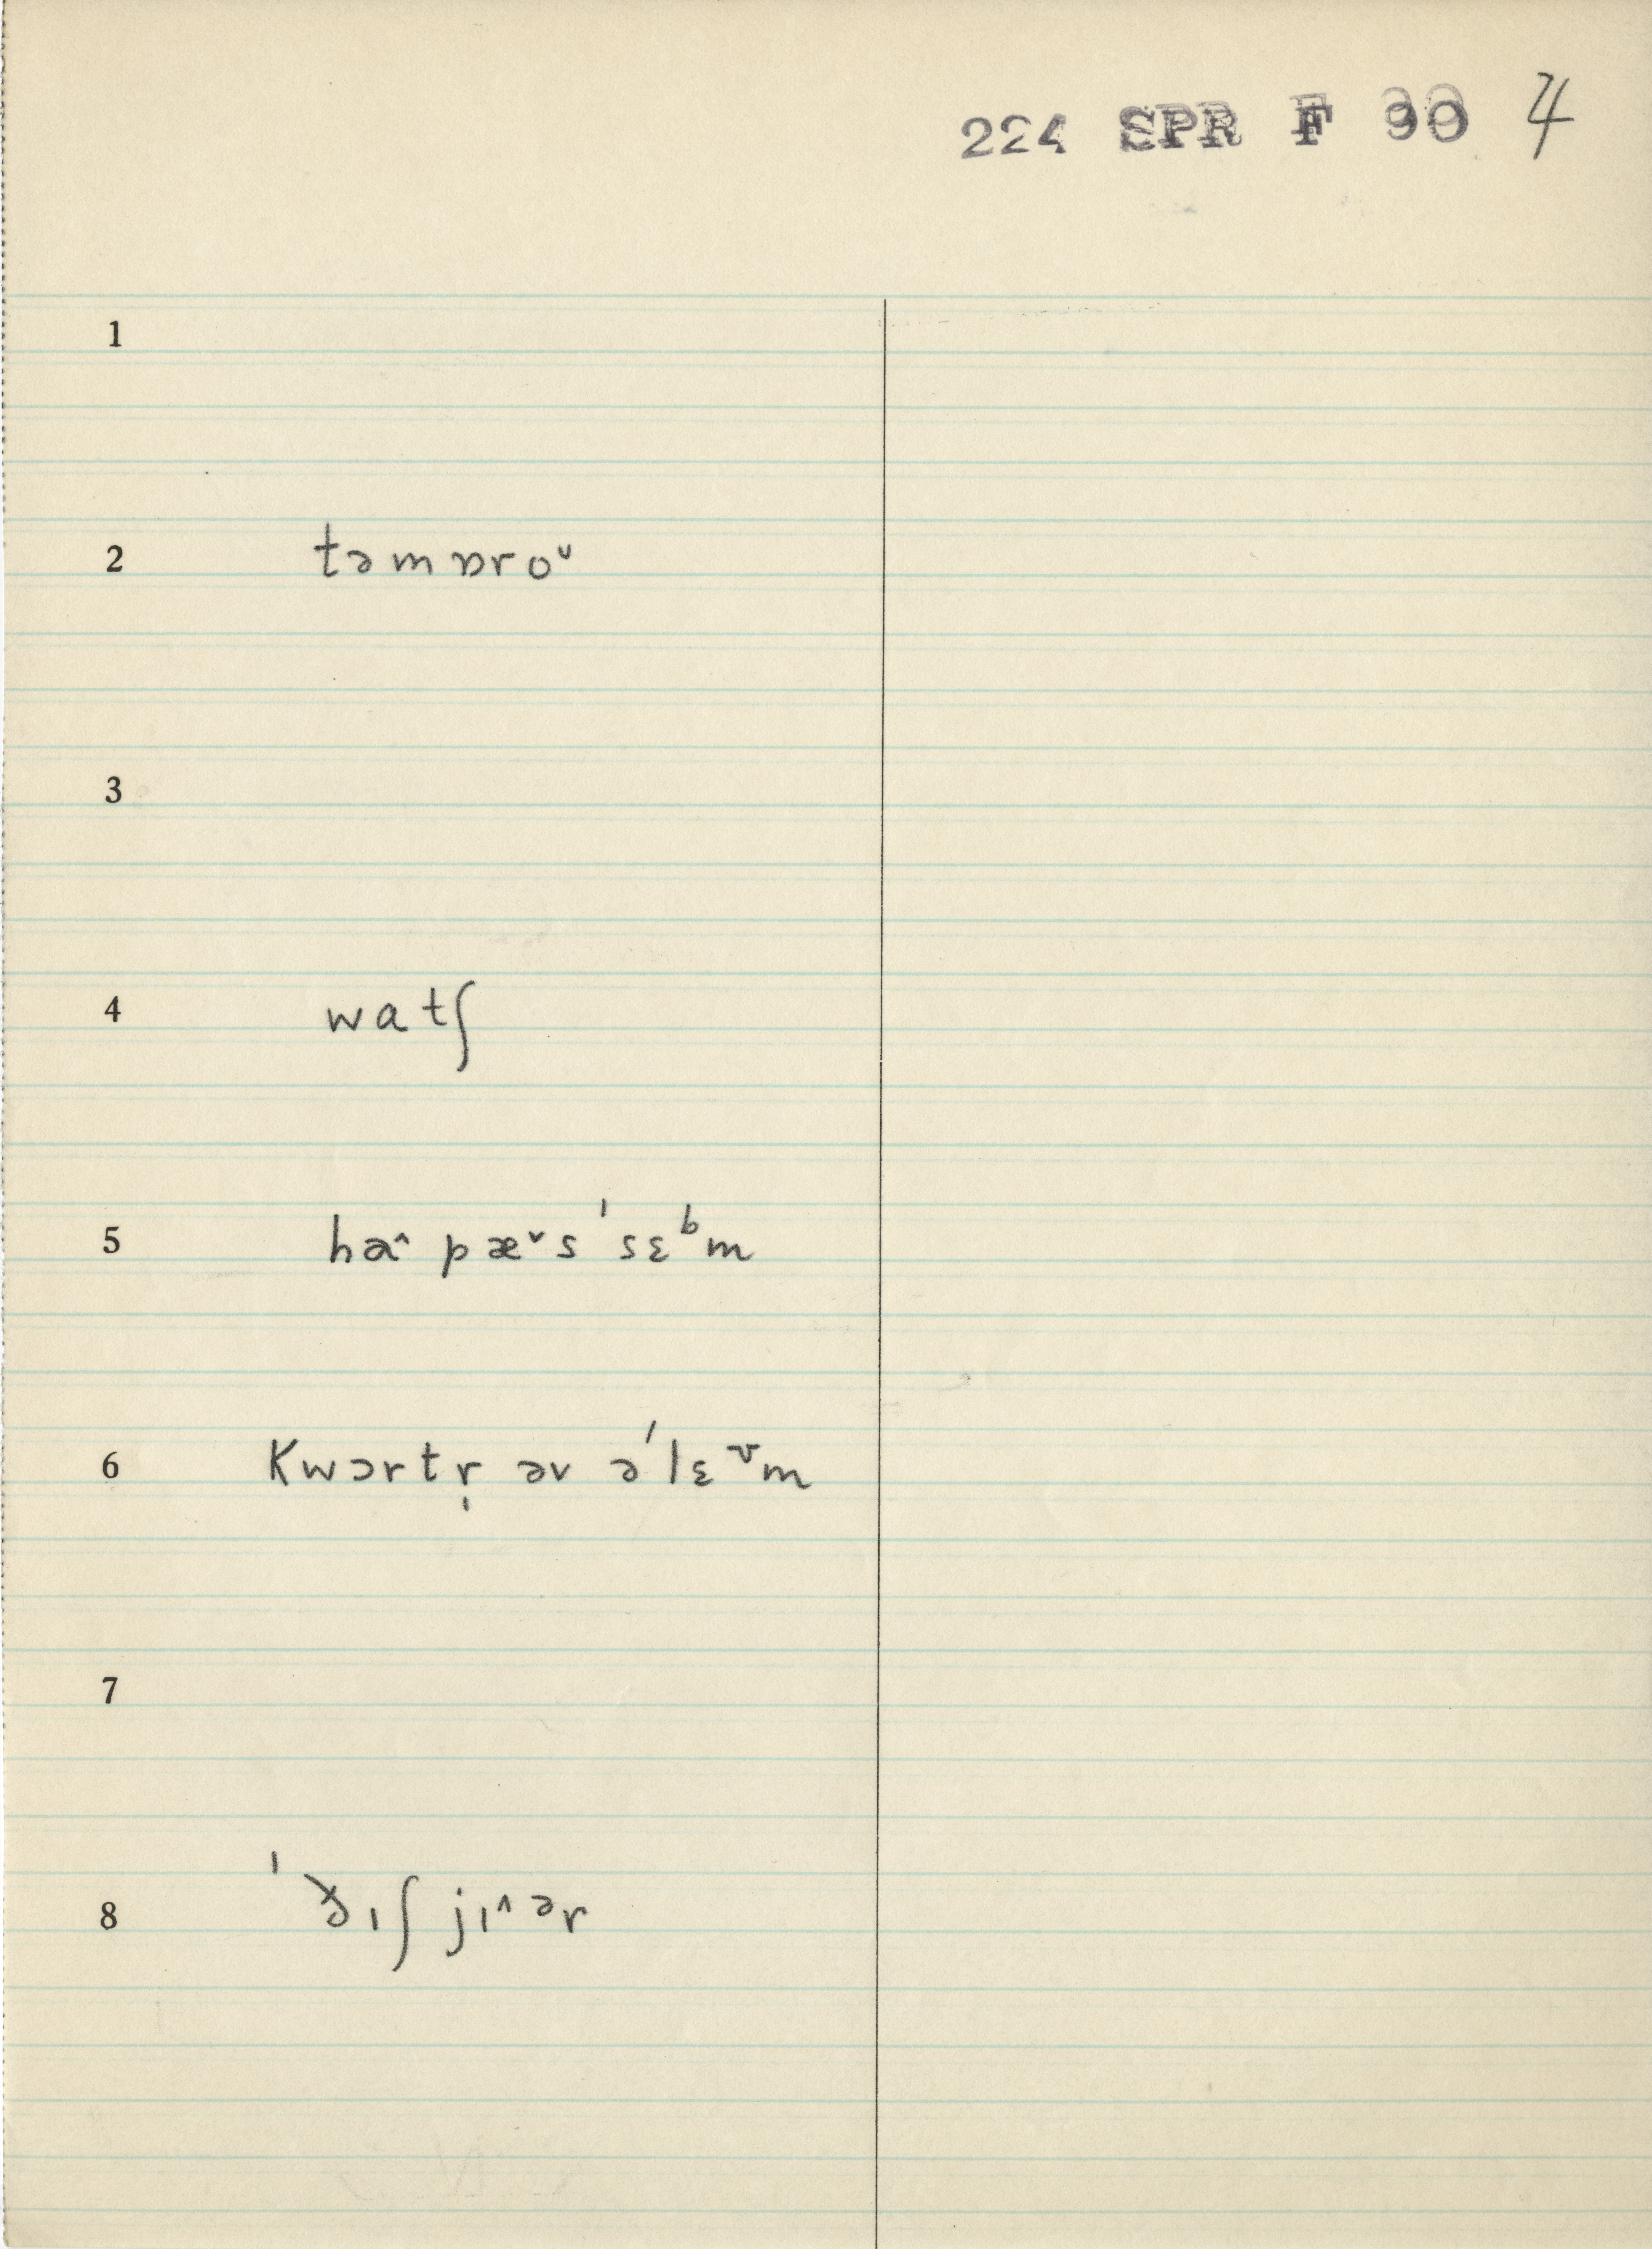 224 SPR F 90 4
1
2 təmɒroᵛ
3
4 watʃ
5 ha^ pæᵛs ˈsɛᵇm
6 Kwɔrtr̩ əv əˈlɛᵛm
7
8 ˈðɪʃ jɪ^ᵊr